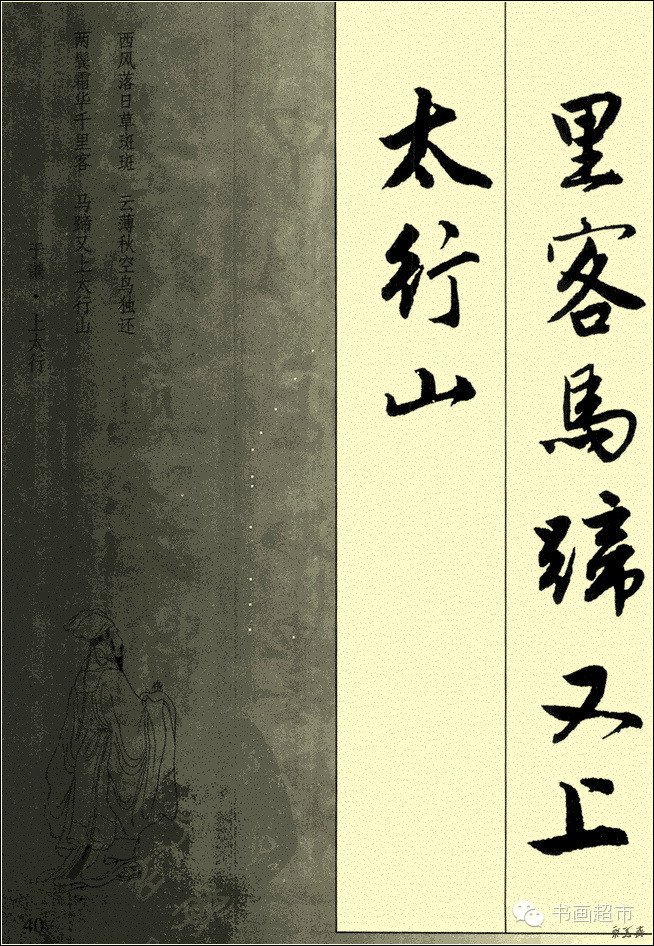 里客馬蹄又上
太行山
西风落日草斑斑　云薄秋空鸟独还
两鬓霜华千里客　马蹄又上太行山
于谦·上太行
40
书画超市